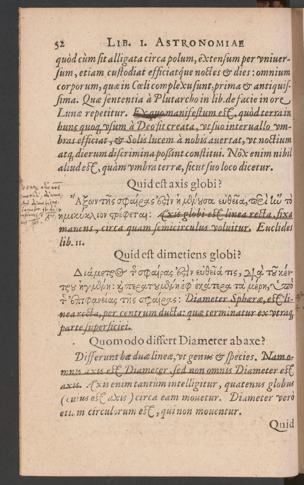 52 LIB. I. ASTRONOMIAE
quòd cùm sit alligata circa polum, extensum per vniuer-
sum, etiam custodiat efficiatque noctes & dies: omnium
corporum, quæ in Cœli complexu sunt, prima & antiquis-
sima. Quæ sententia à Plutarcho in lib. de facie in ore
Lunæ repetitur. Ex quo manifestum est, quòd terra in
hunc quoque vsum à Deo sit creata, vt suo interuallo vm-
bras efficiat, & Solis lucem à nobis auertat, vt noctium
atque dierum discrimina possint constitui. Nox enim nihil
aliud est, quàm vmbra terræ, sicut suo loco dicetur.
Quid est axis globi?
Ἄξων τῆς σφαίρας ἐστὶν ἡ μένουσα εὐθεῖα, περὶ ἣν τὸ
ἡμικύκλιον στρέφεται: Axis globi est linea recta, fixa
manens, circa quam semicirculus voluitur. Euclides
lib. 11.
Quid est dimetiens globi?
Διάμετρος τῆς σφαίρας ἐστὶν εὐθεῖά τις, διὰ τοῦ κέν-
τρου ἠγμένη: καὶ περατουμένη ἐφ' ἑκάτερα τὰ μέρη, ὑπὸ
τῆς ἐπιφανείας τῆς σφαίρας: Diameter Sphæræ, est li-
nea recta, per centrum ducta: quæ terminatur ex vtraque
parte superficiei.
Quomodo differt Diameter ab axe?
Differunt hæ duæ lineæ, vt genus & species. Nam o-
mnis axis est Diameter, sed non omnis Diameter est
axis. Axis enim tantùm intelligitur, quatenus globus
(cuius est axis) circa eam mouetur. Diameter verò
etiam circulorum est, qui non mouentur.
Quid